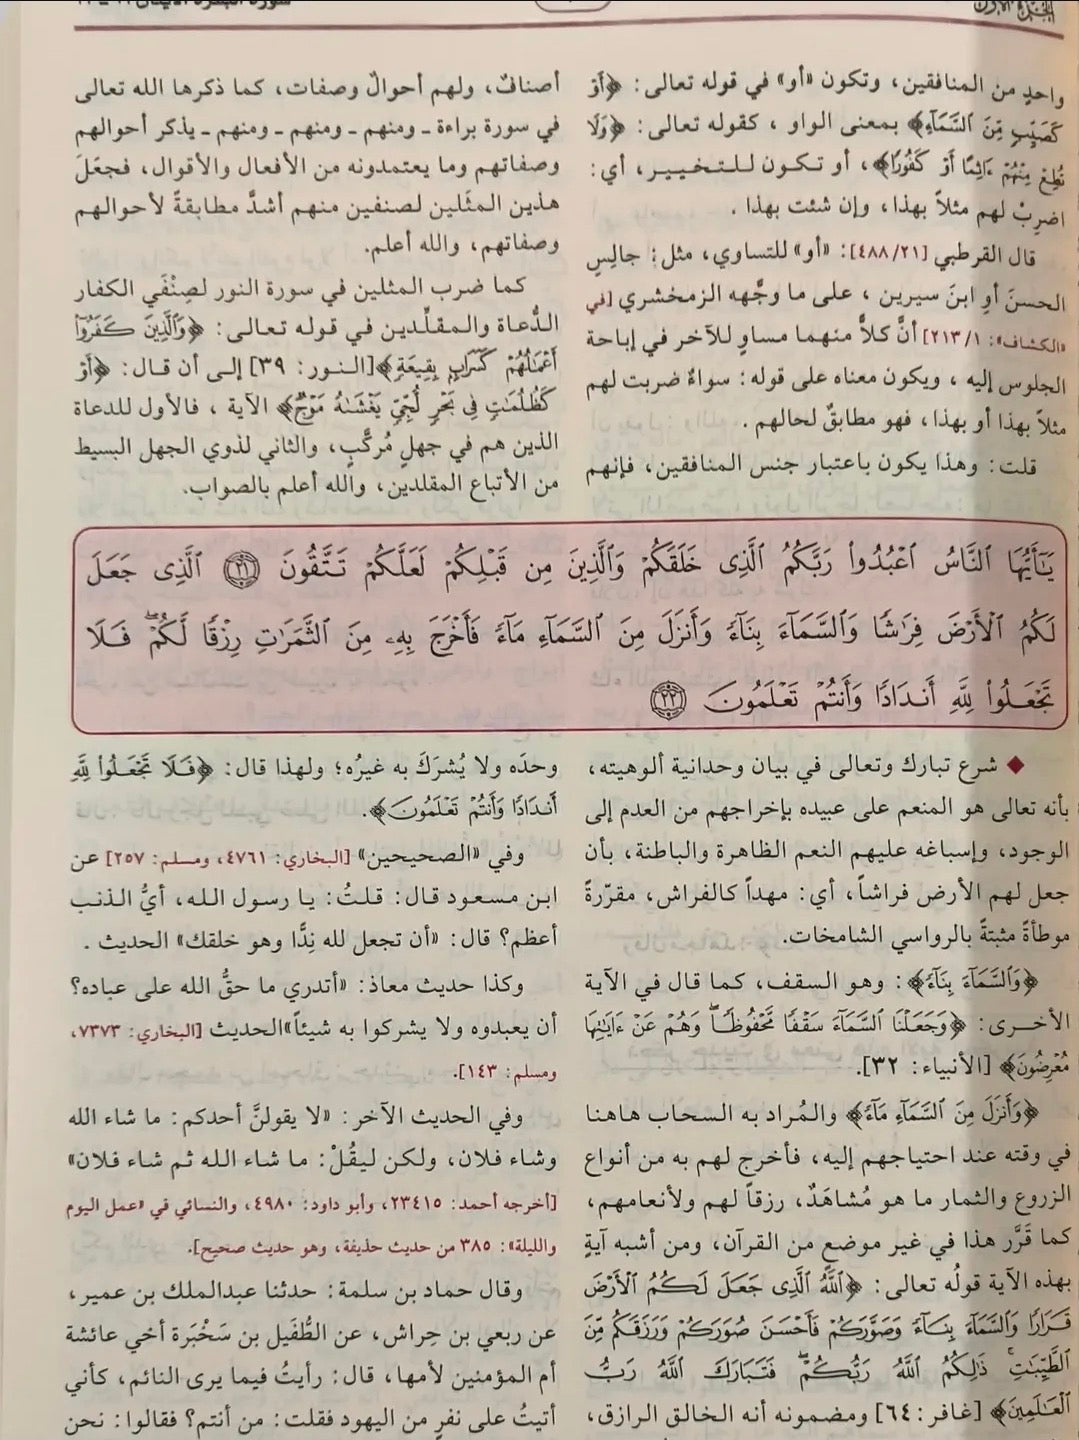 واحدٍ من المنافقين، وتكون «أو» في قوله تعالى: ﴿أَوْ
كَصَيِّبٍ مِّنَ ٱلسَّمَآءِ﴾ بمعنى الواو ، كقوله تعالى: ﴿وَلَا
تُطِعْ مِنْهُمْ ءَاثِمًا أَوْ كَفُورًا﴾، أو تكون للتخيير، أي:
اضرِبْ لهم مثلاً بهذا، وإن شئت بهذا .
قال القرطبي [٤٨٨/٢١]: «أو» للتساوي، مثل: جالِسِ
الحسنَ أوِ ابنَ سيرين ، على ما وجَّهه الزمخشري [في
«الكشاف»: ٢١٣/١] أنَّ كلاًّ منهما مساوٍ للآخر في إباحة
الجلوس إليه ، ويكون معناه على قوله: سواءٌ ضربت لهم
مثلاً بهذا أو بهذا، فهو مطابقٌ لحالهم .
قلت: وهذا يكون باعتبار جنس المنافقين، فإنهم
أصنافٌ، ولهم أحوالٌ وصفات، كما ذكرها الله تعالى
في سورة براءة ـ ومنهم ـ ومنهم ـ ومنهم ـ يذكر أحوالهم
وصفاتهم وما يعتمدونه من الأفعال والأقوال، فجعَلَ
هذين المثَلين لصنفين منهم أشدَّ مطابقةً لأحوالهم
وصفاتهم، والله أعلم.
كما ضرب المثلين في سورة النور لصِنْفَي الكفار
الدُّعاة والمقلِّدين في قوله تعالى: ﴿وَٱلَّذِينَ كَفَرُوٓا۟
أَعْمَٰلُهُمْ كَسَرَابٍۭ بِقِيعَةٍ﴾ [النور: ٣٩] إلى أن قال: ﴿أَوْ
كَظُلُمَٰتٍ فِى بَحْرٍ لُّجِّىٍّ يَغْشَىٰهُ مَوْجٌ﴾ الآية ، فالأول للدعاة
الذين هم في جهلٍ مُركَّبٍ، والثاني لذوي الجهل البسيط
من الأتباع المقلدين، والله أعلم بالصواب.
يَٰٓأَيُّهَا ٱلنَّاسُ ٱعْبُدُوا۟ رَبَّكُمُ ٱلَّذِى خَلَقَكُمْ وَٱلَّذِينَ مِن قَبْلِكُمْ لَعَلَّكُمْ تَتَّقُونَ ٢١ ٱلَّذِى جَعَلَ
لَكُمُ ٱلْأَرْضَ فِرَٰشًا وَٱلسَّمَآءَ بِنَآءً وَأَنزَلَ مِنَ ٱلسَّمَآءِ مَآءً فَأَخْرَجَ بِهِۦ مِنَ ٱلثَّمَرَٰتِ رِزْقًا لَّكُمْ ۖ فَلَا
تَجْعَلُوا۟ لِلَّهِ أَندَادًا وَأَنتُمْ تَعْلَمُونَ ٢٢
◆ شرع تبارك وتعالى في بيان وحدانية ألوهيته،
بأنه تعالى هو المنعم على عبيده بإخراجهم من العدم إلى
الوجود، وإسباغه عليهم النعم الظاهرة والباطنة، بأن
جعل لهم الأرض فراشاً، أي: مهداً كالفراش، مقرّرةً
موطأةً مثبتةً بالرواسي الشامخات.
﴿وَٱلسَّمَآءَ بِنَآءً﴾: وهو السقف، كما قال في الآية
الأخرى: ﴿وَجَعَلْنَا ٱلسَّمَآءَ سَقْفًا مَّحْفُوظًا ۖ وَهُمْ عَنْ ءَايَٰتِهَا
مُعْرِضُونَ﴾ [الأنبياء: ٣٢].
﴿وَأَنزَلَ مِنَ ٱلسَّمَآءِ مَآءً﴾ والمُراد به السحاب هاهنا
في وقته عند احتياجهم إليه، فأخرج لهم به من أنواع
الزروع والثمار ما هو مُشاهَدٌ، رزقاً لهم ولأنعامهم،
كما قَرَّر هذا في غير موضعٍ من القرآن، ومن أشبه آيةٍ
بهذه الآية قولُه تعالى: ﴿ٱللَّهُ ٱلَّذِى جَعَلَ لَكُمُ ٱلْأَرْضَ
قَرَارًا وَٱلسَّمَآءَ بِنَآءً وَصَوَّرَكُمْ فَأَحْسَنَ صُوَرَكُمْ وَرَزَقَكُم مِّنَ
ٱلطَّيِّبَٰتِ ۚ ذَٰلِكُمُ ٱللَّهُ رَبُّكُمْ ۖ فَتَبَارَكَ ٱللَّهُ رَبُّ
ٱلْعَٰلَمِينَ﴾ [غافر: ٦٤] ومضمونه أنه الخالق الرازق،
وحدَه ولا يُشرَكَ به غيرُه؛ ولهذا قال: ﴿فَلَا تَجْعَلُوا۟ لِلَّهِ
أَندَادًا وَأَنتُمْ تَعْلَمُونَ﴾.
وفي «الصحيحين» [البخاري: ٤٧٦١، ومسلم: ٢٥٧] عن
ابن مسعود قال: قلتُ: يا رسول الله، أيُّ الذنب
أعظم؟ قال: «أن تجعل لله نِدًّا وهو خلقك» الحديث .
وكذا حديث معاذ: «أتدري ما حقُّ الله على عباده؟
أن يعبدوه ولا يشركوا به شيئاً»الحديث [البخاري: ٧٣٧٣،
ومسلم: ١٤٣].
وفي الحديث الآخر: «لا يقولنَّ أحدكم: ما شاء الله
وشاء فلان، ولكن ليقُلْ: ما شاء الله ثم شاء فلان»
[أخرجه أحمد: ٢٣٤١٥، وأبو داود: ٤٩٨٠، والنسائي في «عمل اليوم
والليلة»: ٣٨٥ من حديث حذيفة، وهو حديث صحيح].
وقال حماد بن سلمة: حدثنا عبدالملك بن عمير،
عن ربعي بن حِراش، عن الطُّفَيل بن سَخْبَرة أخي عائشة
أم المؤمنين لأمها، قال: رأيتُ فيما يرى النائم، كأني
أتيتُ على نفرٍ من اليهود فقلت: من أنتم؟ فقالوا: نحن